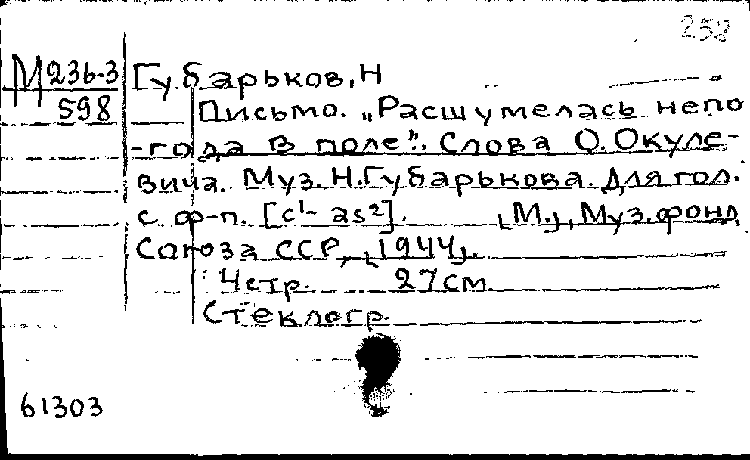 258
М 236-3
598
Губарьков, Н
Письмо. „Расшумелась непо
-года в поле". Слова О. Окуле-
вича. Муз. Н. Губарькова. Для гол.
с ф-п. [c¹- as²]. [М.], Муз. фонд
Союза ССР, [1944].
4 стр. 27 см
Стеклогр.
61303